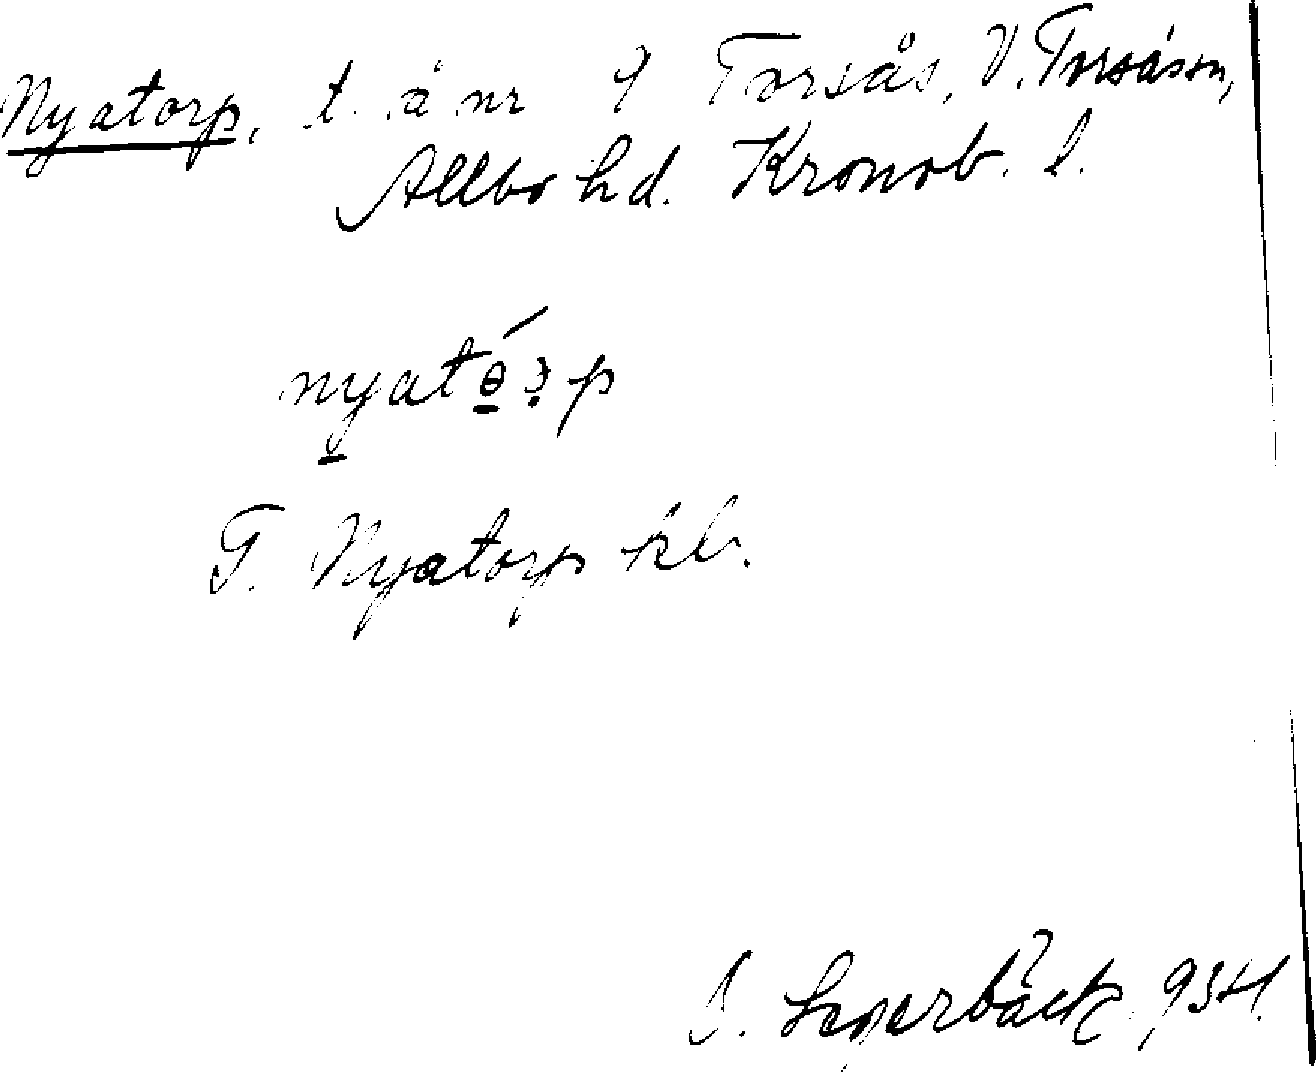 Nyatorp, t. å nr 9 Torsås, V. Torsås sn,
Allbo hd. Kronob. l.
nyatórp
T. Nyatorp kb.
Lagerbäck, 934.